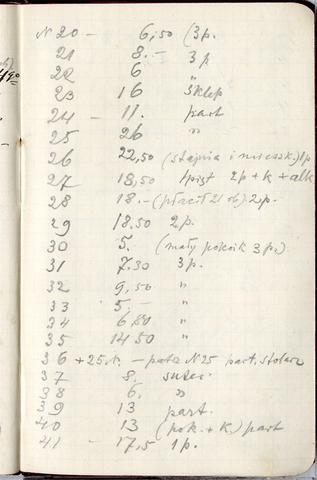 N 20 – 6,50 (3 p.
21 8.– 3 p
22 6 "
23 16 sklep
24 – 11. part
25 26 "
26 22,50 (stajnia i mieszk.) 1p
27 18,50 1pięt 2p + k + alk
28 18.– (płacił 21 ob) 2p.
29 18.50 2p.
30 5. (mały pokoik 3 p.)
31 7.30 3p.
32 9,50 "
33 5.– "
34 6,80 "
35 14,50 "
36 + 25 – patrz N 25 part. stolarz
37 8.
38 6. "
39 13 part.
40 13 (pok. + k.) part
41 – 17,5 1p.